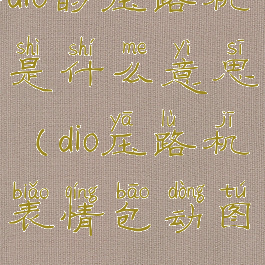 dio的压路机
shì shí me yì sī
是什么意思
yā lù jī
(dio压路机
biǎo qíng bāo dòng tú
表情包动图